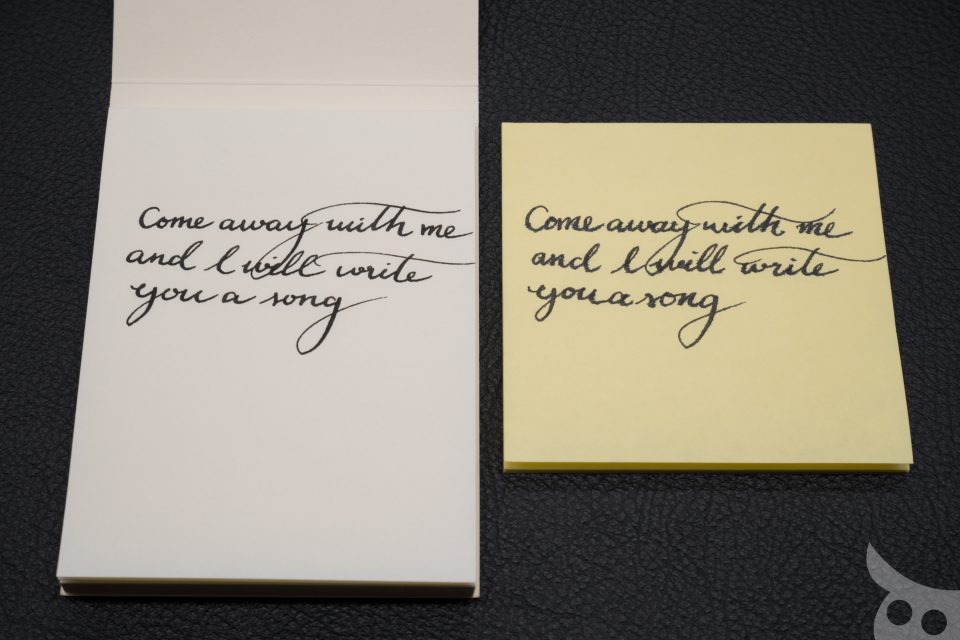 Come away with me
and I will write
you a song
Come away with me
and I will write
you a song